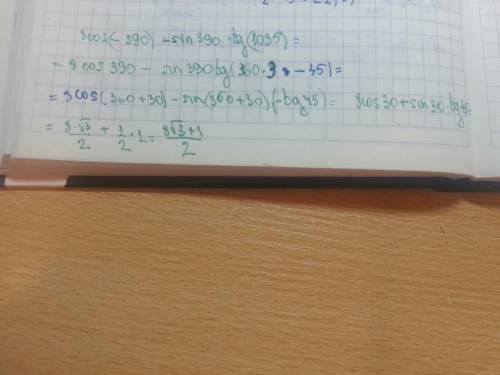 8cos(-390) - sin 390 · tg(1035) =
= 8 cos 390 - sin 390 tg(360·3 - 45) =
= 8cos(360+30) - sin(360+30)(-tg45) = 8cos30 + sin30·tg45=
= 8·√3/2 + 1/2 · 1 = 8√3+1/2